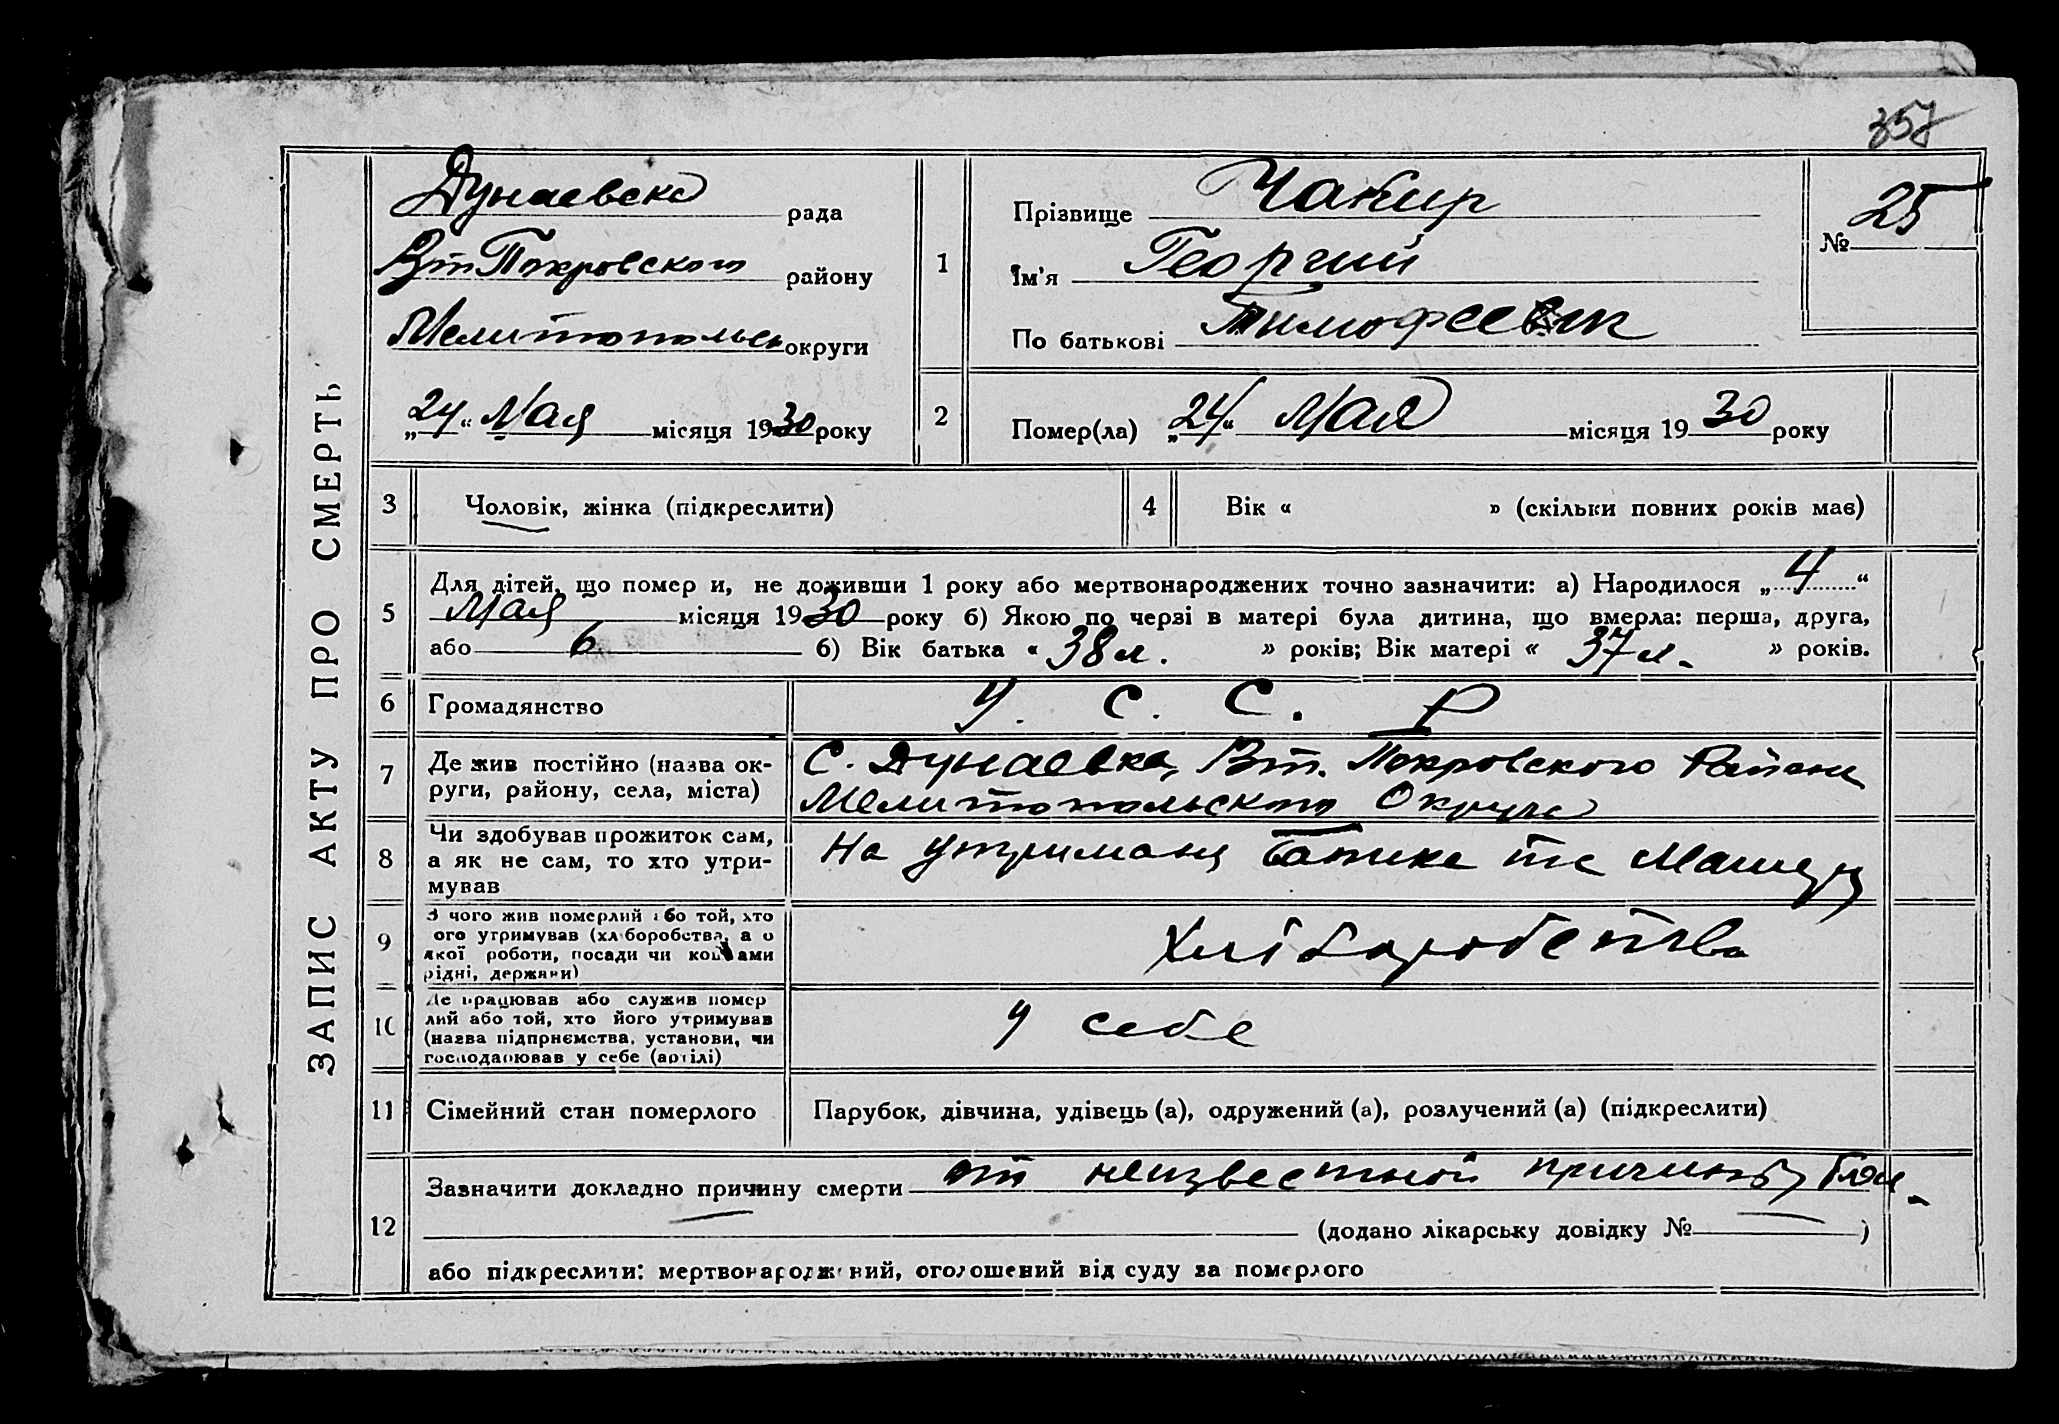 357
ЗАПИС АКТУ ПРО СМЕРТЬ
Дунаевска рада
Вт Покровского району
Мелитопольс округи
„24“ Мая місяця 1930 року
1
Прізвище Чакир
Ім'я Георгий
По батькові Тимофеевич
№ 25
2
Помер(ла) „24“ Мая місяця 1930 року
3 Чоловік, жінка (підкреслити)
4 Вік « » (скільки повних років має)
5
Для дітей, що помер и, не доживши 1 року або мертвонароджених точно зазначити: а) Народилося „4“
Мая місяця 1930 року б) Якою по черзі в матері була дитина, що вмерла: перша, друга,
або 6 б) Вік батька « 38 л. » років; Вік матері « 37 л. » років.
6 Громадянство У. С. С. Р
7 Де жив постійно (назва ок-
руги, району, села, міста)
С. Дунаевка, Вт. Покровского Района
Мелитопольского Округа
8
Чи здобував прожиток сам,
а як не сам, то хто утри-
мував
На утриманя Батька та Матеря
9
З чого жив померлий або той, хто
ого утримував (хліборобства, а о
якої роботи, посади чи коштами
рідні, держави)
Хліборобства
10
Де працював або служив помер
лий або той, хто його утримував
(назва підприємства, установи, чи
господарював у себе (артілі)
У себе
11 Сімейний стан померлого
Парубок, дівчина, удівець (а), одружений (а), розлучений (а) (підкреслити)
12
Зазначити докладно причину смерти от неизвестной причины
(додано лікарську довідку № )
або підкреслити: мертвонароджений, оголошений від суду за померлого